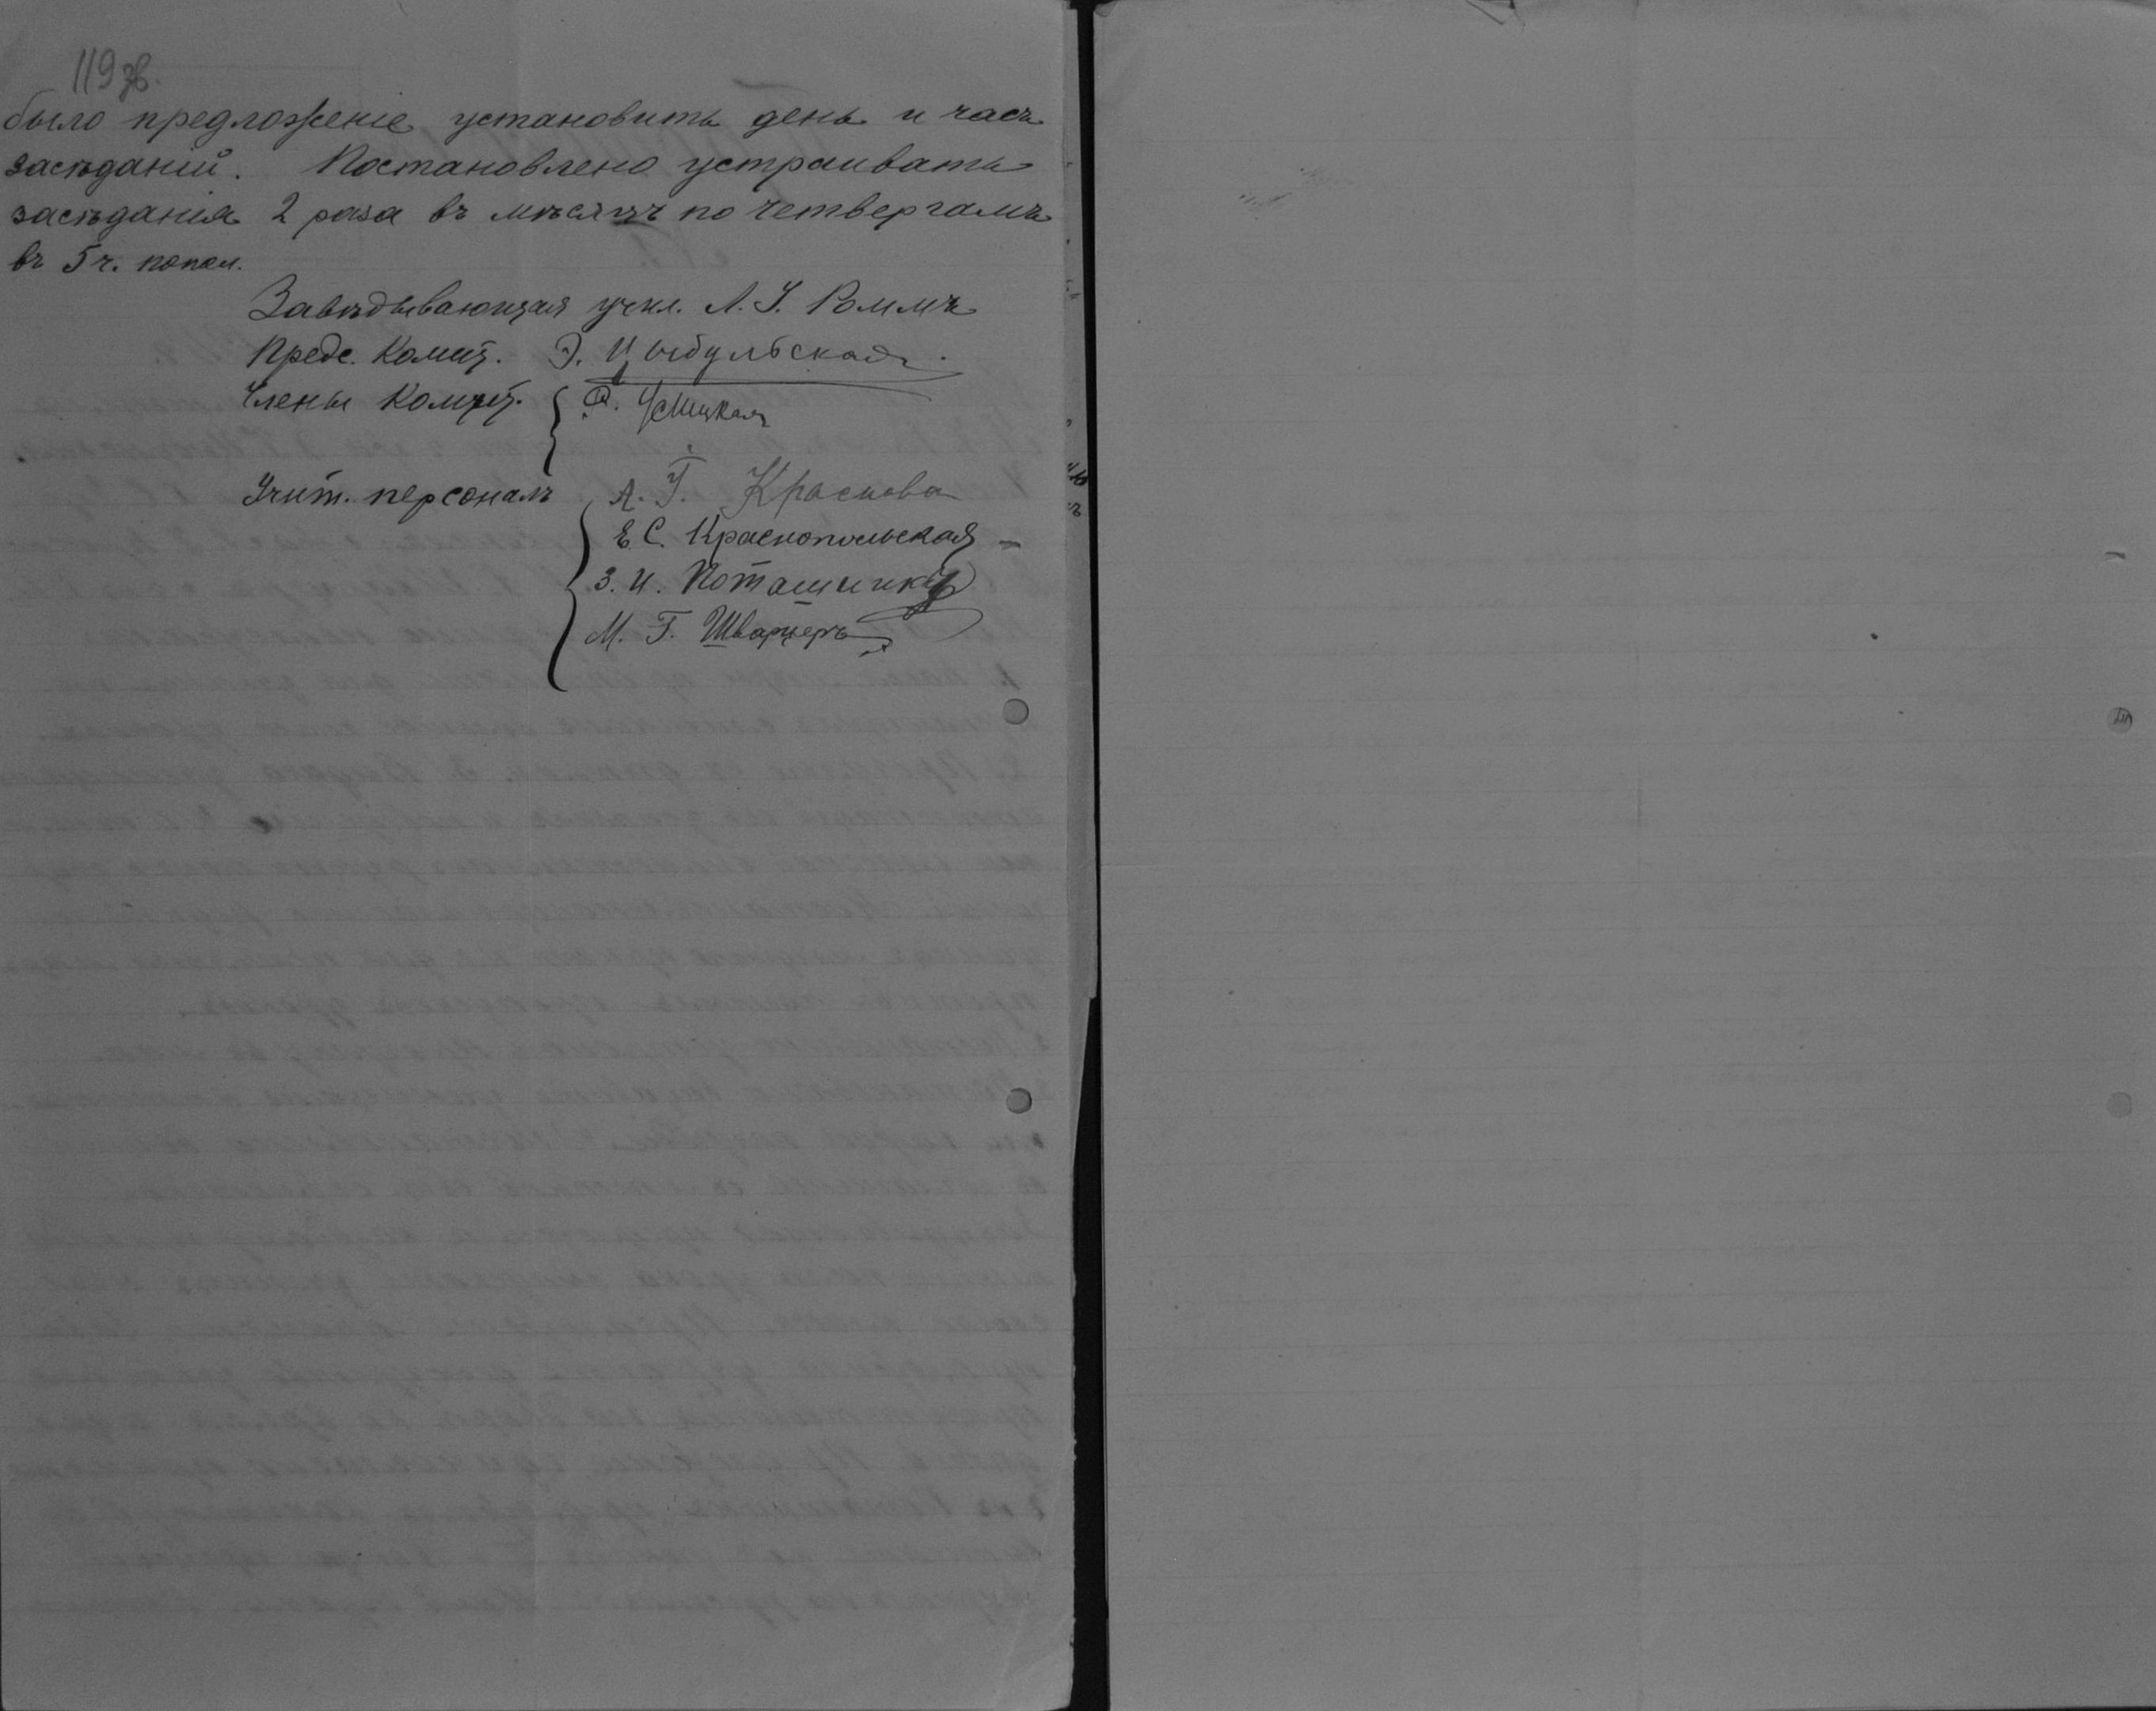 119 зв.
было предложеніе установить день и часъ
засѣданій. Постановлено устраивать
засѣданія 2 раза въ мѣсяцъ по четвергамъ
въ 5 ч. попол.
Завѣдывающая учил. Л. І. Роммъ
Предс. Комит. Э. Цыбульская.
Члены Комит.
Учит. персоналъ А. Г. Краснова
Е. С. Краснопольская
З. И. Поташник
М. Г. Шварцеръ